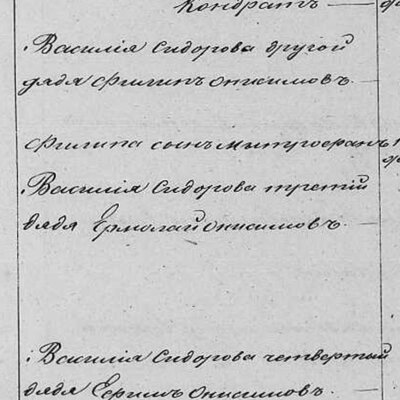 Кондратъ —
Василія Сидорова другой
дядя Филипъ Онисимовъ —
Филипа сынъ Митрофанъ
Василія Сидорова третій
дядя Ермолай Онисимовъ —
Василія Сидорова четвертый
дядя Ефимъ Онисимовъ —